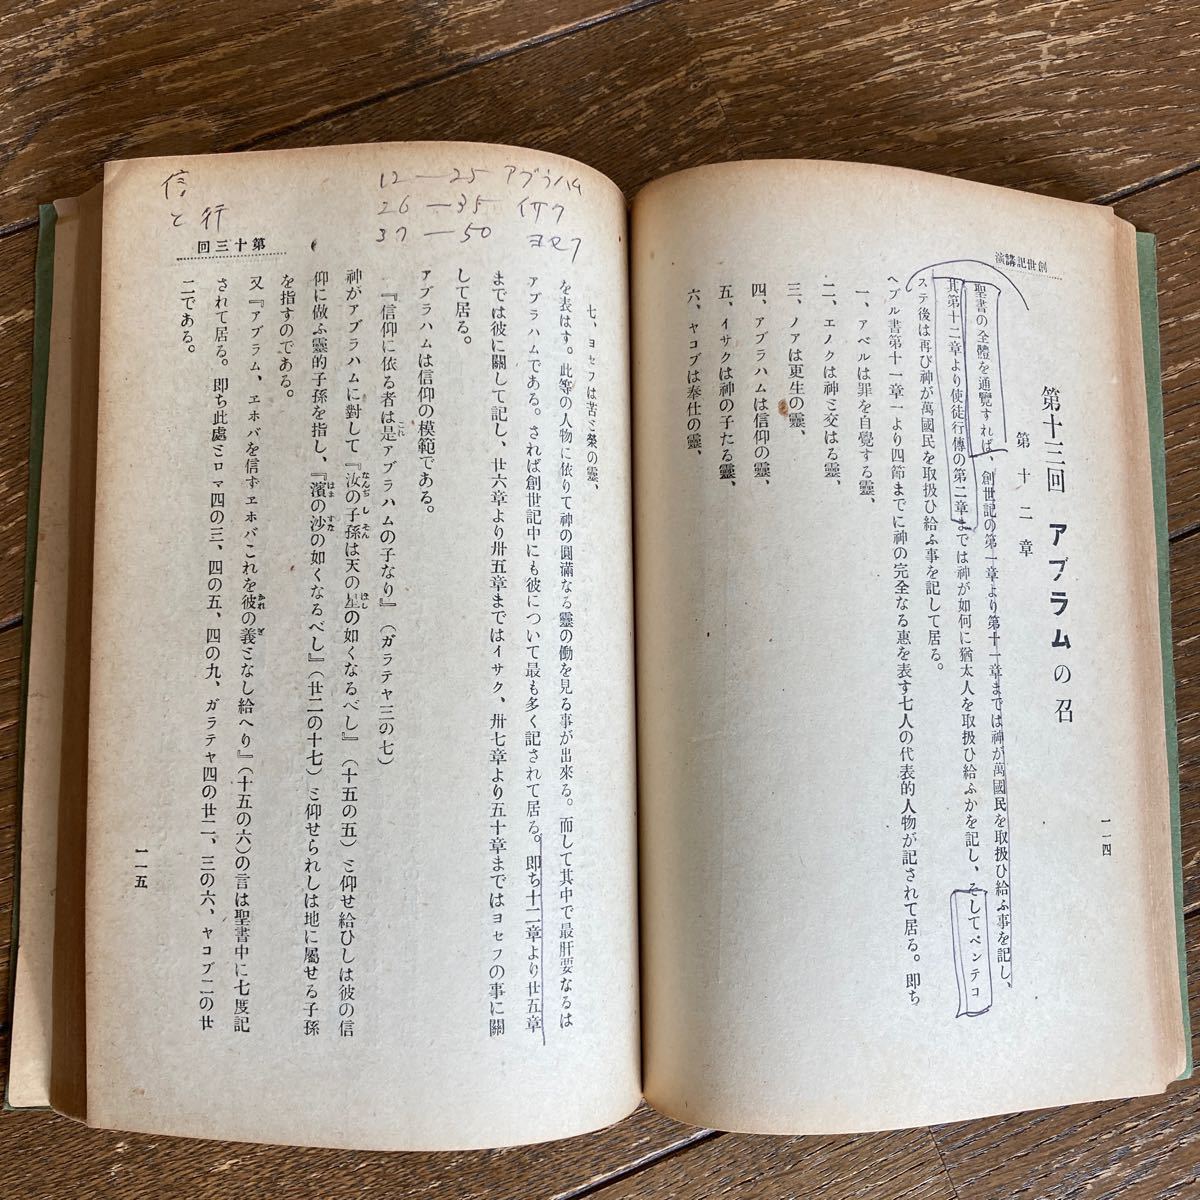 創世記講演
第十三回 アブラムの召
第十二章
聖書の全體を通覽すれば、創世記の第一章より第十一章までは神が萬國民を取扱ひ給ふ事を記し、
其第十二章より使徒行傳の第二章までは神が如何に猶太人を取扱ひ給ふかを記し、そしてペンテコ
ステ後は再び神が萬國民を取扱ひ給ふ事を記して居る。
ヘブル書第十一章一より四節までに神の完全なる惠を表す七人の代表的人物が記されて居る。卽ち
一、アベルは罪を自覺する靈、
二、エノクは神と交はる靈、
三、ノアは更生の靈、
四、アブラハムは信仰の靈、
五、イサクは神の子たる靈、
六、ヤコブは奉仕の靈、
一一四
12—25 アブラハム
26—35 イサク
37—50 ヨセフ
信
と 行
第十三回
七、ヨセフは苦と榮の靈、
を表はす。此等の人物に依りて神の圓滿なる靈の働を見る事が出來る。而して其中で最肝要なるは
アブラハムである。されば創世記中にも彼について最も多く記されて居る。卽ち十二章より廿五章
までは彼に關して記し、廿六章より卅五章まではイサク、卅七章より五十章まではヨセフの事に關
して居る。
アブラハムは信仰の模範である。
『信仰に依る者は是アブラハムの子なり』(ガラテヤ三の七)
神がアブラハムに對して『汝の子孫は天の星の如くなるべし』(十五の五)と仰せ給ひしは彼の信
仰に倣ふ靈的子孫を指し、『濱の沙の如くなるべし』(廿二の十七)と仰せられしは地に屬せる子孫
を指すのである。
又『アブラム、ヱホバを信ずヱホバこれを彼の義となし給へり』(十五の六)の言は聖書中に七度記
されて居る。卽ち此處とロマ四の三、四の五、四の九、ガラテヤ四の廿二、三の六、ヤコブ二の廿
二である。
一一五